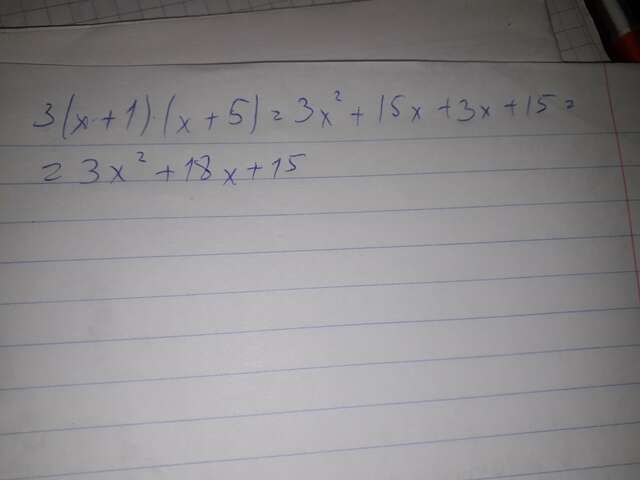 3(x+1)·(x+5)=3x²+15x+3x+15=
=3x²+18x+15